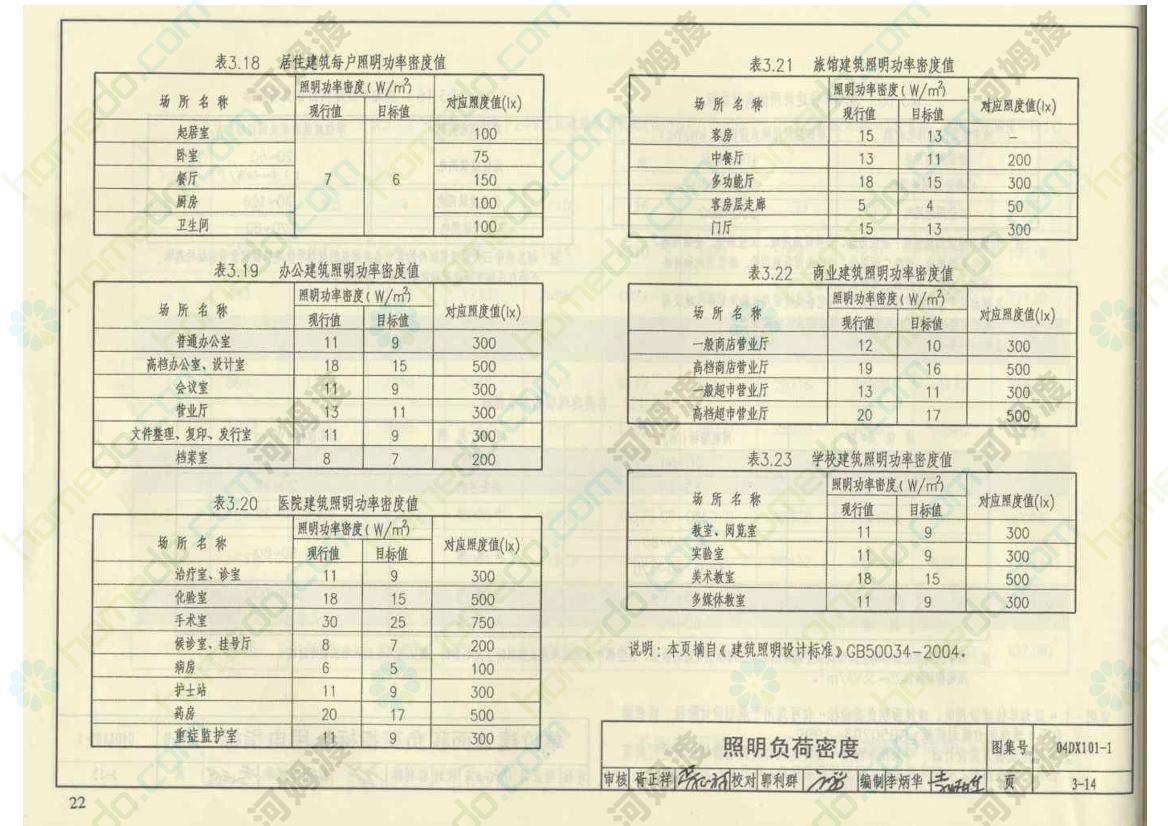 表3.18 居住建筑每户照明功率密度值
场所名称 照明功率密度(W/m²) 对应照度值(lx)
现行值 目标值
起居室 7 6 100
卧室 75
餐厅 150
厨房 100
卫生间 100
表3.19 办公建筑照明功率密度值
场所名称 照明功率密度(W/m²) 对应照度值(lx)
现行值 目标值
普通办公室 11 9 300
高档办公室、设计室 18 15 500
会议室 11 9 300
营业厅 13 11 300
文件整理、复印、发行室 11 9 300
档案室 8 7 200
表3.20 医院建筑照明功率密度值
场所名称 照明功率密度(W/m²) 对应照度值(lx)
现行值 目标值
治疗室、诊室 11 9 300
化验室 18 15 500
手术室 30 25 750
候诊室、挂号厅 8 7 200
病房 6 5 100
护士站 11 9 300
药房 20 17 500
重症监护室 11 9 300
表3.21 旅馆建筑照明功率密度值
场所名称 照明功率密度(W/m²) 对应照度值(lx)
现行值 目标值
客房 15 13 —
中餐厅 13 11 200
多功能厅 18 15 300
客房层走廊 5 4 50
门厅 15 13 300
表3.22 商业建筑照明功率密度值
场所名称 照明功率密度(W/m²) 对应照度值(lx)
现行值 目标值
一般商店营业厅 12 10 300
高档商店营业厅 19 16 500
一般超市营业厅 13 11 300
高档超市营业厅 20 17 500
表3.23 学校建筑照明功率密度值
场所名称 照明功率密度(W/m²) 对应照度值(lx)
现行值 目标值
教室、阅览室 11 9 300
实验室 11 9 300
美术教室 18 15 500
多媒体教室 11 9 300
说明：本页摘自《建筑照明设计标准》GB50034-2004.
照明负荷密度 图集号 04DX101-1
审核 胥正祥 校对 郭利群 编制 李炳华 页 3-14
22
homedo.com 河姆渡